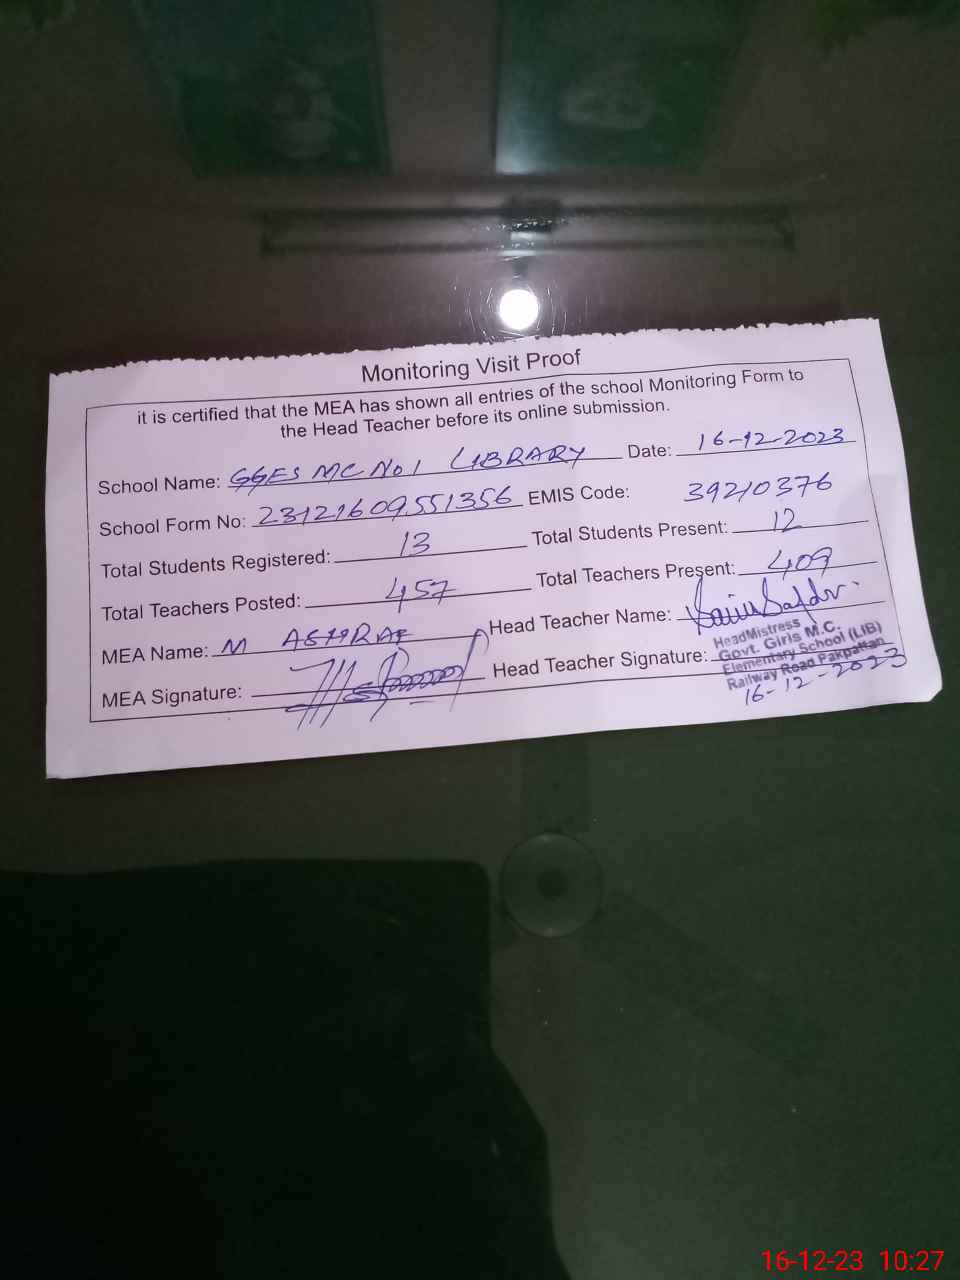 Monitoring Visit Proof
it is certified that the MEA has shown all entries of the school Monitoring Form to
the Head Teacher before its online submission.
School Name: GGES MC No 1 LIBRARY Date: 16-12-2023
School Form No: 23121609551356 EMIS Code: 39210376
Total Students Registered: 13 Total Students Present: 12
Total Teachers Posted: 457 Total Teachers Present: 409
MEA Name: M ASHRAF Head Teacher Name:
MEA Signature: Head Teacher Signature:
HeadMistress
Govt. Girls M.C.
Elementary School (LIB)
Railway Road Pakpattan
16-12-2023
16-12-23 10:27